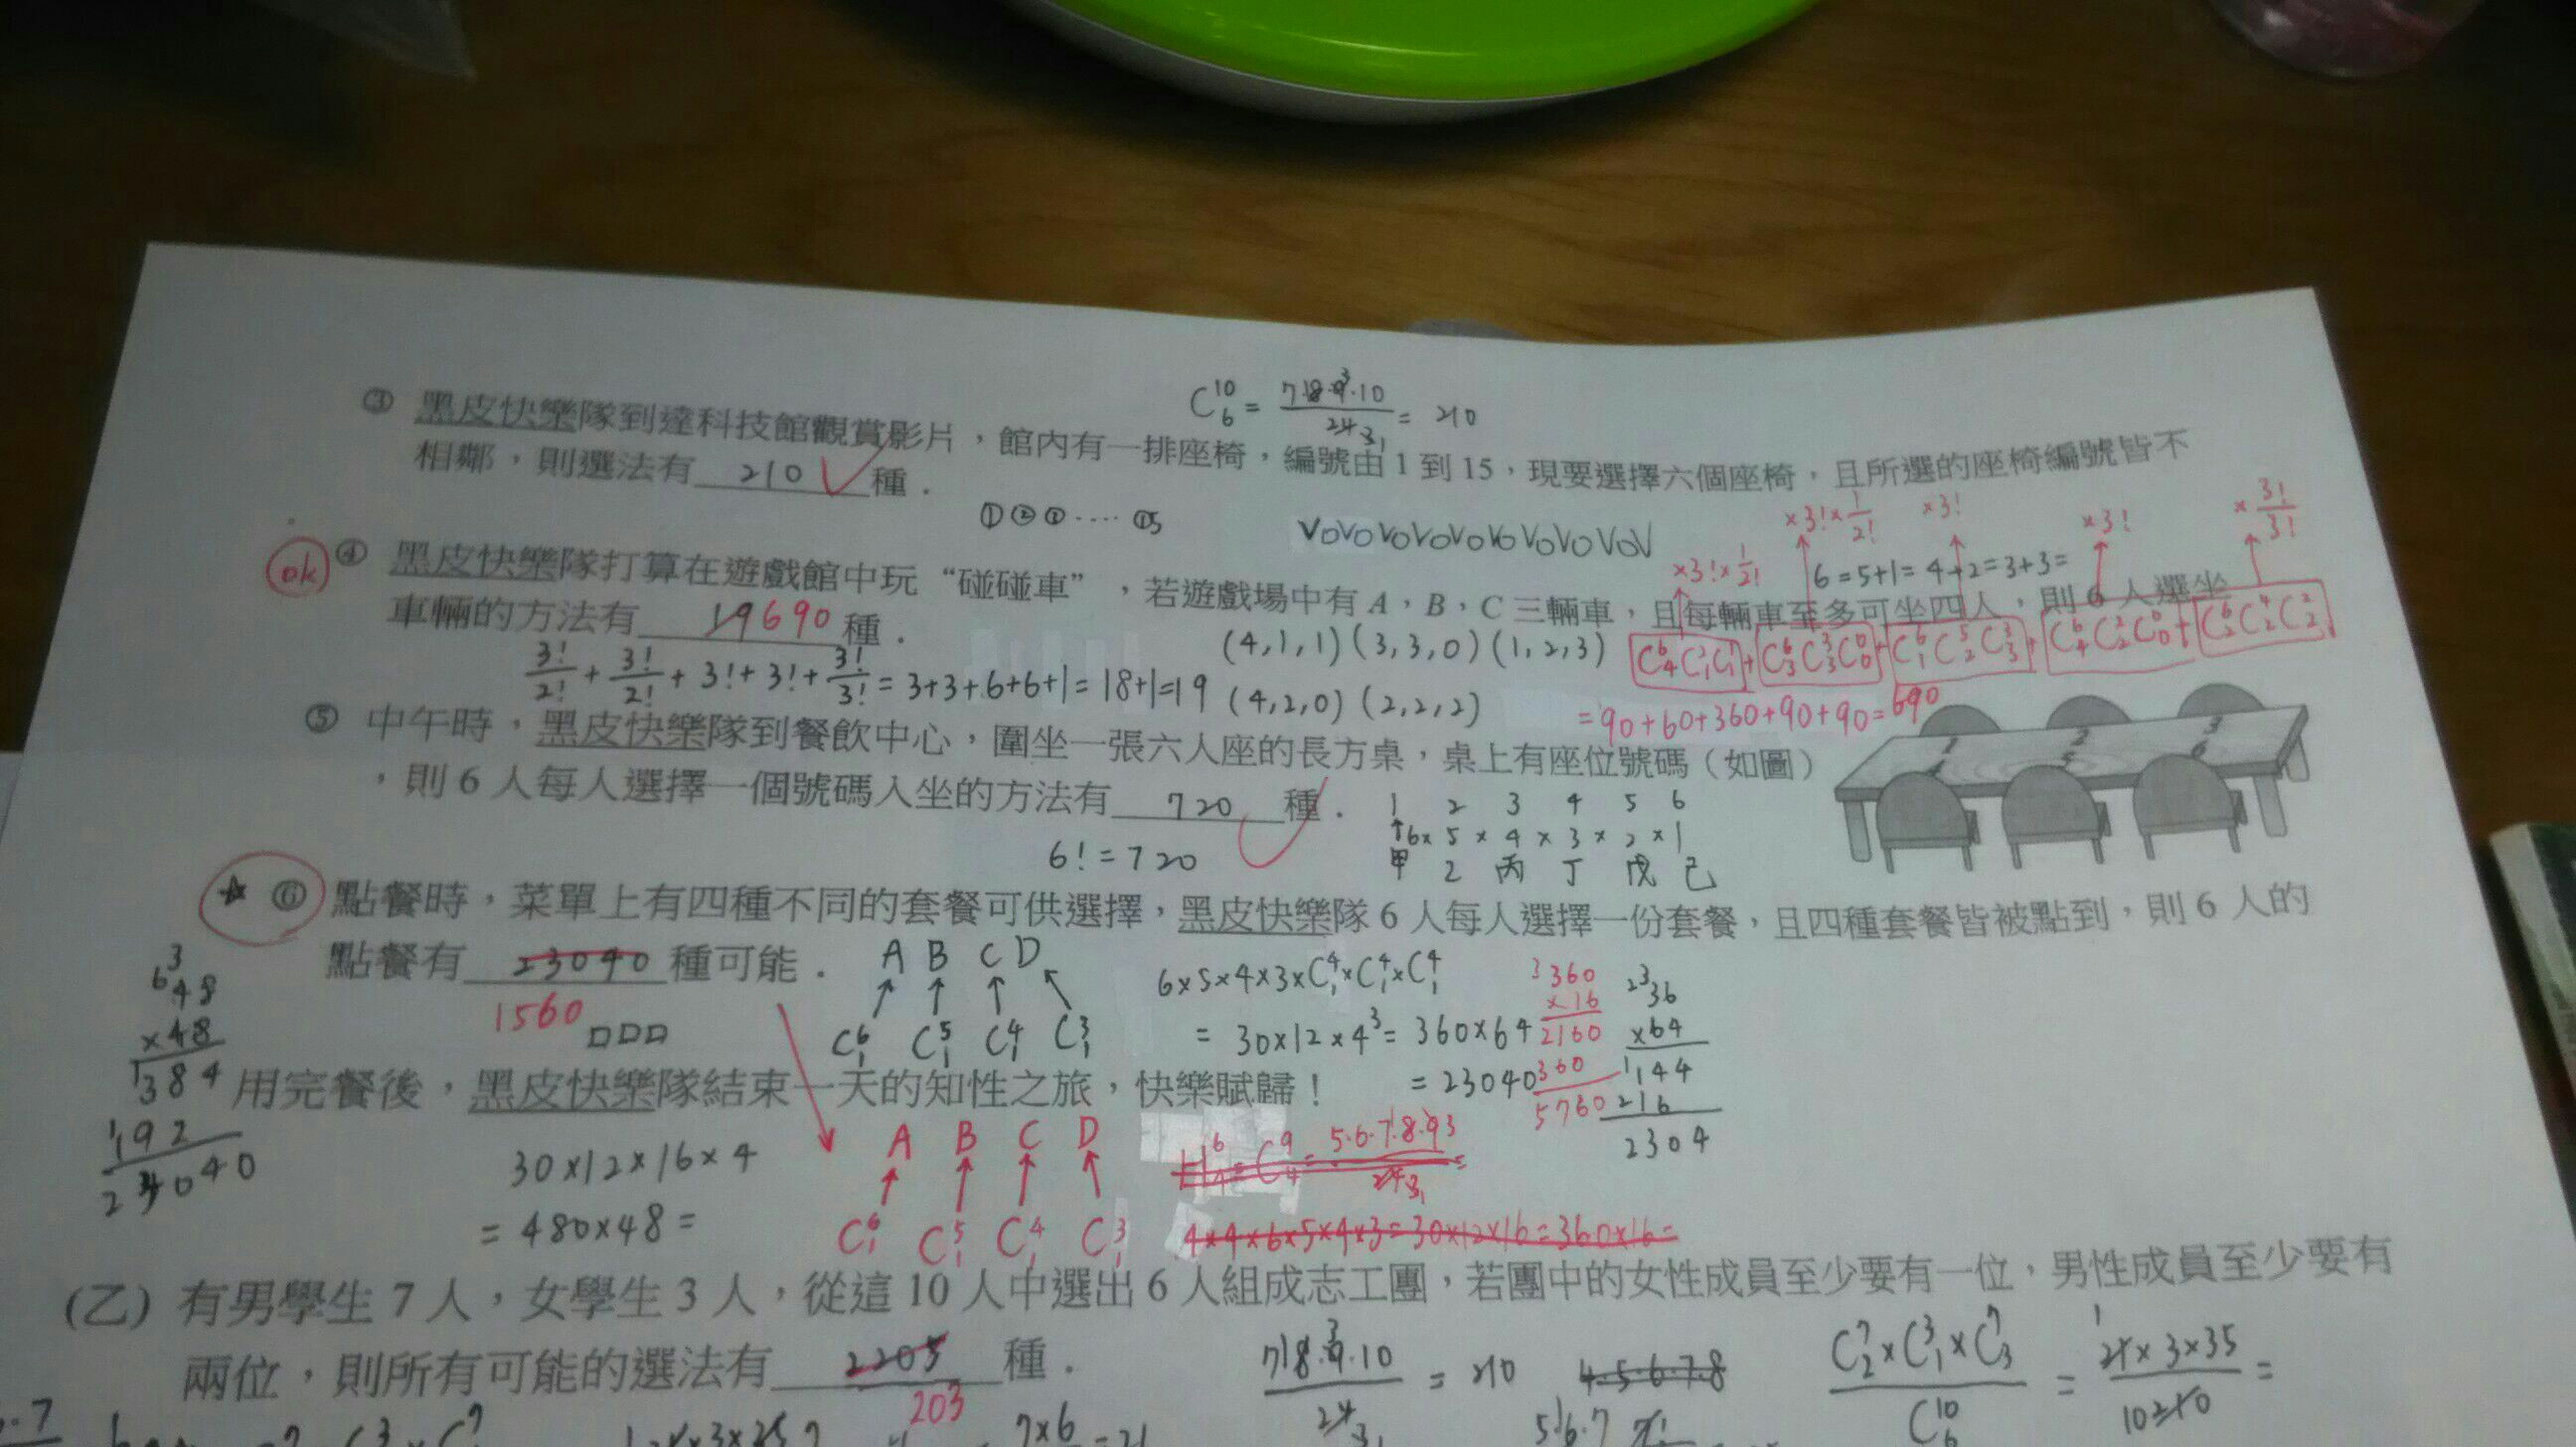 C₆¹⁰ = 7·8·9³·10 / 24 3₁ = 210
③ 黑皮快樂隊到達科技館觀賞影片，館內有一排座椅，編號由 1 到 15，現要選擇六個座椅，且所選的座椅編號皆不
相鄰，則選法有 210 種．
①②③····⑮ VOVOVOVOVOVOVOVOVOV
×3!×1/2! ×3!×1/2! ×3! ×3! ×3!/3!
6=5+1=4+2=3+3=
ok ④ 黑皮快樂隊打算在遊戲館中玩“碰碰車”，若遊戲場中有 A，B，C 三輛車，且每輛車至多可坐四人，則 6 人選坐
車輛的方法有 19690 種．
(4,1,1)(3,3,0)(1,2,3)
3!/2! + 3!/2! + 3! + 3! + 3!/3! = 3+3+6+6+1=18+1=19 (4,2,0)(2,2,2)
=90+60+360+90+90=690
⑤ 中午時，黑皮快樂隊到餐飲中心，圍坐一張六人座的長方桌，桌上有座位號碼（如圖）
，則 6 人每人選擇一個號碼入坐的方法有 720 種．
1 2 3
4 5 6
1 2 3 4 5 6
6×5×4×3×2×1
甲 乙 丙 丁 戊 己
6!=720
☆ ⑥ 點餐時，菜單上有四種不同的套餐可供選擇，黑皮快樂隊 6 人每人選擇一份套餐，且四種套餐皆被點到，則 6 人的
點餐有 23040 種可能．
1560
A B C D
C₁⁶ C₁⁵ C₁⁴ C₁³
6×5×4×3×C₁⁴×C₁⁴×C₁⁴
=30×12×4³=360×64
=23040
360
×16
2160
360
5760
36
×64
144
216
2304
48
×48
384
192
用完餐後，黑皮快樂隊結束一天的知性之旅，快樂賦歸！
30×12×16×4
=480×48=
A B C D
C₁⁶ C₁⁵ C₁⁴ C₁³
4×4×6×5×4×3=30×12×16=360×16=
(乙) 有男學生 7 人，女學生 3 人，從這 10 人中選出 6 人組成志工團，若團中的女性成員至少要有一位，男性成員至少要有
兩位，則所有可能的選法有 2205 種．
203
7·8·9³·10 / 24 3₁ = 210
4·5·6·7·8
C₂⁷×C₁³×C₃⁷ / C₆¹⁰ = 21×3×35 / 10210 =